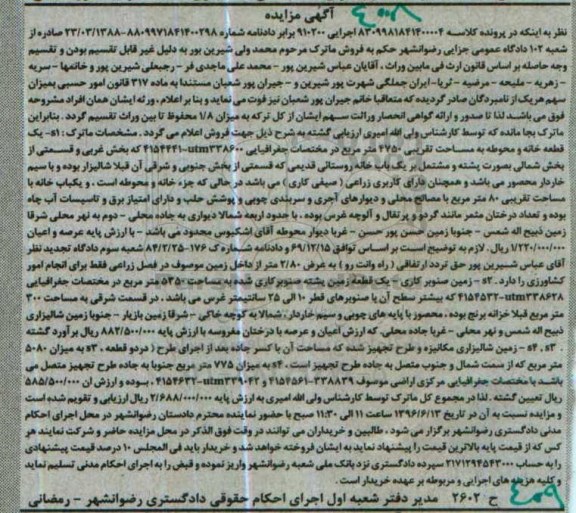 آگهی مزایده
نظر به اینکه در پرونده کلاسه ۸۳۰۹۹۸۱۸۴۱۴۰۰۰۰۴ اجرایی ۹۱۰۲۰۰ برابر دادنامه شماره ۸۸۰۹۹۷۱۸۴۱۴۰۰۲۹۸-۲۳/۰۳/۱۳۸۸ صادره از
شعبه ۱۰۲ دادگاه عمومی جزایی رضوانشهر حکم به فروش ماترک مرحوم محمد ولی شیرین پور به دلیل غیر قابل تقسیم بودن و تقسیم
وجه حاصله بر اساس قانون ارث فی مابین وراث ، آقایان عباس شیرین پور - محمد علی ماجدی فر - رجبعلی شیرین پور و خانمها - سریه
- زهریه - ملیحه - مرضیه - ثریا - ایران جملگی شهرت پور شیرین و - جیران پور شعبان مستندا به ماده ۳۱۷ قانون امور حسبی بمیزان
سهم هریک از نامبردگان صادر گردیده که متعاقبا خانم جیران پور شعبان نیز فوت می نماید و بنا بر اعلام ، ورثه ایشان همان افراد مشروحه
فوق می باشند لذا صدور و ارائه گواهی انحصار وراثت سهم ایشان از کل ترکه به میزان ۱/۸ محفوظ تا بین وراث تقسیم گردد . بنابراین
ماترک بجا مانده که توسط کارشناس ولی اله امیری ارزیابی گشته به شرح ذیل جهت فروش اعلام می گردد . مشخصات ماترک : ۱s- یک
قطعه خانه و محوطه به مساحت تقریبی ۴۷۵۰ متر مربع در مختصات جغرافیایی ۳۳۸۶۰۰-utm۴۱۵۴۴۴۱ که بخش غربی و قسمتی از
بخش شمالی بصورت پشته و مشتمل بر یک باب خانه روستائی قدیمی که قسمتی از بخش جنوبی و شرقی آن قبلا شالیزار بوده و با سیم
خاردار محصور می باشد و همچنان دارای کاربری زراعی ( صیفی کاری ) می باشد در حالی که جزء خانه و محوطه است . و یکباب خانه با
مساحت تقریبی ۸۰ متر مربع با مصالح محلی و دیوارهای آجری و سربندی چوبی و پوشش حلب و دارای امتیاز برق و تاسیسات آب چاه
بوده و تعداد درختان مثمر مانند گردو و پرتقال و آلوچه غرس بوده . با حدود اربعه شمالا دیواری به جاده محلی - دوم به نهر محلی شرقا
زمین ذبیح اله شمس - جنوبا زمین حسن پور حسن - غربا دیوار محوطه آقای اشکبوس محدود می باشد - با ارزش پایه عرصه و اعیان
۱/۲۲۰/۰۰۰/۰۰۰ ریال . لازم به توضیح است بر اساس توافق ۶۹/۱۲/۱۵ و دادنامه شماره ک ۱۷۶-۸۴/۲/۲۵ شعبه سوم دادگاه تجدید نظر
آقای عباس شیرین پور حق تردد ارتفاقی ( راه وانت رو ) به عرض ۲/۸۰ متر از داخل زمین موصوف در فصل زراعی فقط برای انجام امور
کشاورزی را دارد . ۲s- زمین صنوبر کاری - یک قطعه زمین پشته صنوبر کاری شده به مساحت ۵۳۵۰ متر مربع در مختصات جغرافیایی
۳۳۸۶۲۸-utm۴۱۵۴۵۳۲ که بیشتر سطح آن با صنوبرهای قطر ۱۰ الی ۲۵ سانتیمتر غرس می باشد . در قسمت شرقی به مساحت ۳۰۰
متر مربع قبلا خزانه برنج بوده . محصور با پایه های چوبی و سیم خاردار . شمالا به کوچه خاکی - شرقا زمین بازیار - جنوبا زمین شالیزاری
ذبیح اله شمس و نهر محلی - غربا جاده محلی . که ارزش اعیان و عرصه با درختان مفروسه با ارزش پایه ۸۸۲/۵۰۰/۰۰۰ ریال برآورد گشته
. ۳s . ۴s - زمین شالیزاری مکانیزه و طرح تجهیز شده که مساحت آن با کسر جاده بعد از اجرای طرح ( در دو قطعه . ۳s به میزان ۵۰۸۰
متر مربع که از سمت شمال و جنوب متصل به جاده طرح تجهیز است . ۴s به میزان ۷۷۵ متر مربع جنوبا به جاده طرح تجهیز متصل می
باشد با مختصات جغرافیایی مرکزی اراضی موصوف ۳۳۸۸۳۹-۴۱۵۴۵۶۱ و ۳۳۹۰۴۲-utm۴۱۵۴۶۳۲ . بوده و ارزش آن ۵۸۵/۵۰۰/۰۰۰
ریال تعیین گشته . لذا در مجموع کل ماترک توسط کارشناس ولی اله امیری به ارزش پایه ۲/۶۸۸/۰۰۰/۰۰۰ ریال ارزیابی و تقویم شده است
و مزایده نسبت به آن در تاریخ ۱۳۹۶/۶/۱۲ ساعت ۱۱ الی ۱۱:۳۰ صبح با حضور نماینده محترم دادستان رضوانشهر در محل اجرای احکام
مدنی دادگستری رضوانشهر برگزار می شود . طالبین و خریداران می توانند در وقت فوق الذکر در محل مزایده حاضر و شرکت نمایند هر
کس که از قیمت پایه بالاترین قیمت را پیشنهاد نماید به ایشان فروخته خواهد شد و خریدار باید فی المجلس ۱۰ درصد قیمت پیشنهادی
را به حساب ۲۱۷۱۲۹۴۵۴۳۰۰۰ سپرده دادگستری نزد بانک ملی شعبه رضوانشهر واریز نموده و قبض را به اجرای احکام مدنی تسلیم نماید
و کلیه هزینه های اجرایی و مربوطه بر عهده خریدار است .
ح ۲۶۰۲ مدیر دفتر شعبه اول اجرای احکام حقوقی دادگستری رضوانشهر - رمضانی